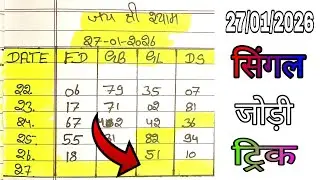 जय श्री श्याम
27-01-2026
DATE FD GB GL DS
22. 06 79 35 07
23. 17 71 02 81
24. 67 42 36
25. 55 82 94
26. 18 51 10
27
27/01/2026
सिंगल
जोड़ी
ट्रिक